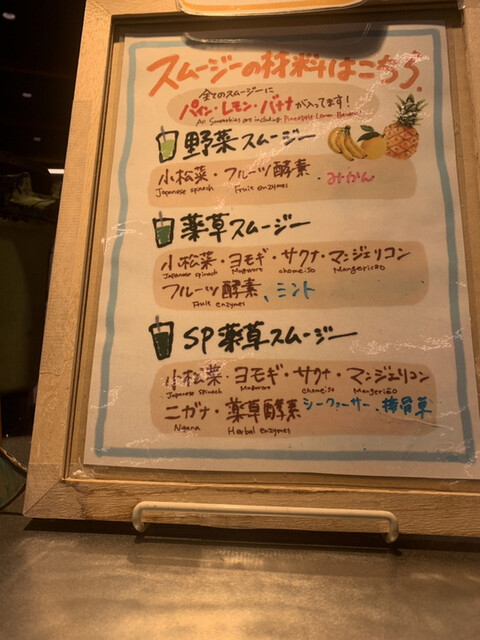 スムージーの材料はこちら。
全てのスムージーに
パイン・レモン・バナナが入ってます!
All Smoothies are including Pineapple Lemon Banana!
野菜スムージー
小松菜・フルーツ酵素 ・みかん
Japanese spinach Fruit enzymes
薬草スムージー
小松菜・ヨモギ・サクナ・マンジェリコン
Japanese spinach Mugwort chomeiso Mangericão
フルーツ酵素、ミント
Fruit enzymes
SP薬草スムージー
小松菜・ヨモギ・サクナ・マンジェリコン
Japanese spinach Mugwort chomeiso Mangericão
ニガナ・薬草酵素 シークヮーサー、接骨草
Ngana Herbal enzymes